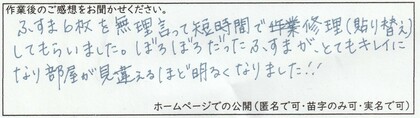 作業後のご感想をお聞かせください。
ふすま6枚を無理言って短時間で修理(貼り替え)
してもらいました。ぼろぼろだったふすまが、とてもキレイに
なり部屋が見違えるほど明るくなりました!!
ホームページでの公開(匿名で可・苗字のみ可・実名で可)